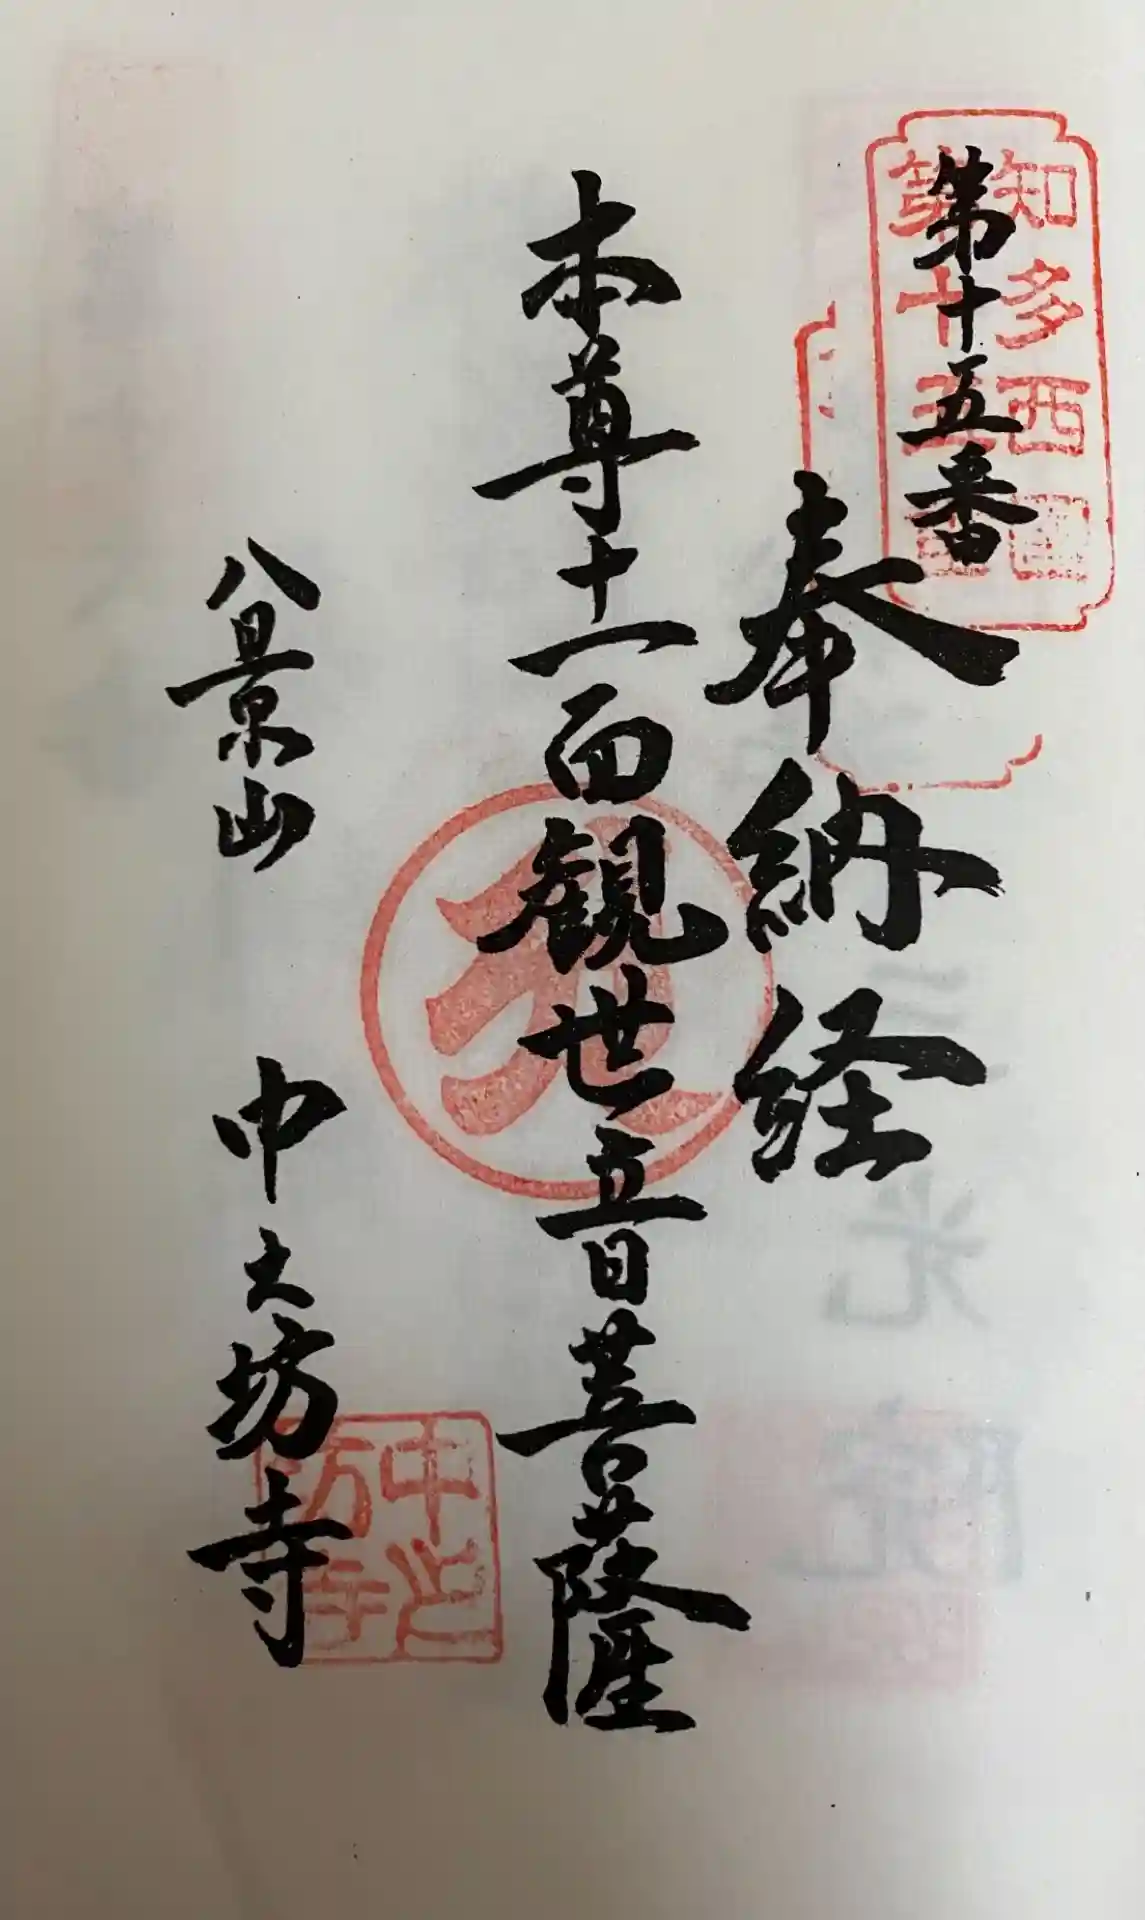 知多西国
第十五番
第十五番
奉納経
本尊十一面観世音菩薩
八景山 中之坊寺
中之
坊寺